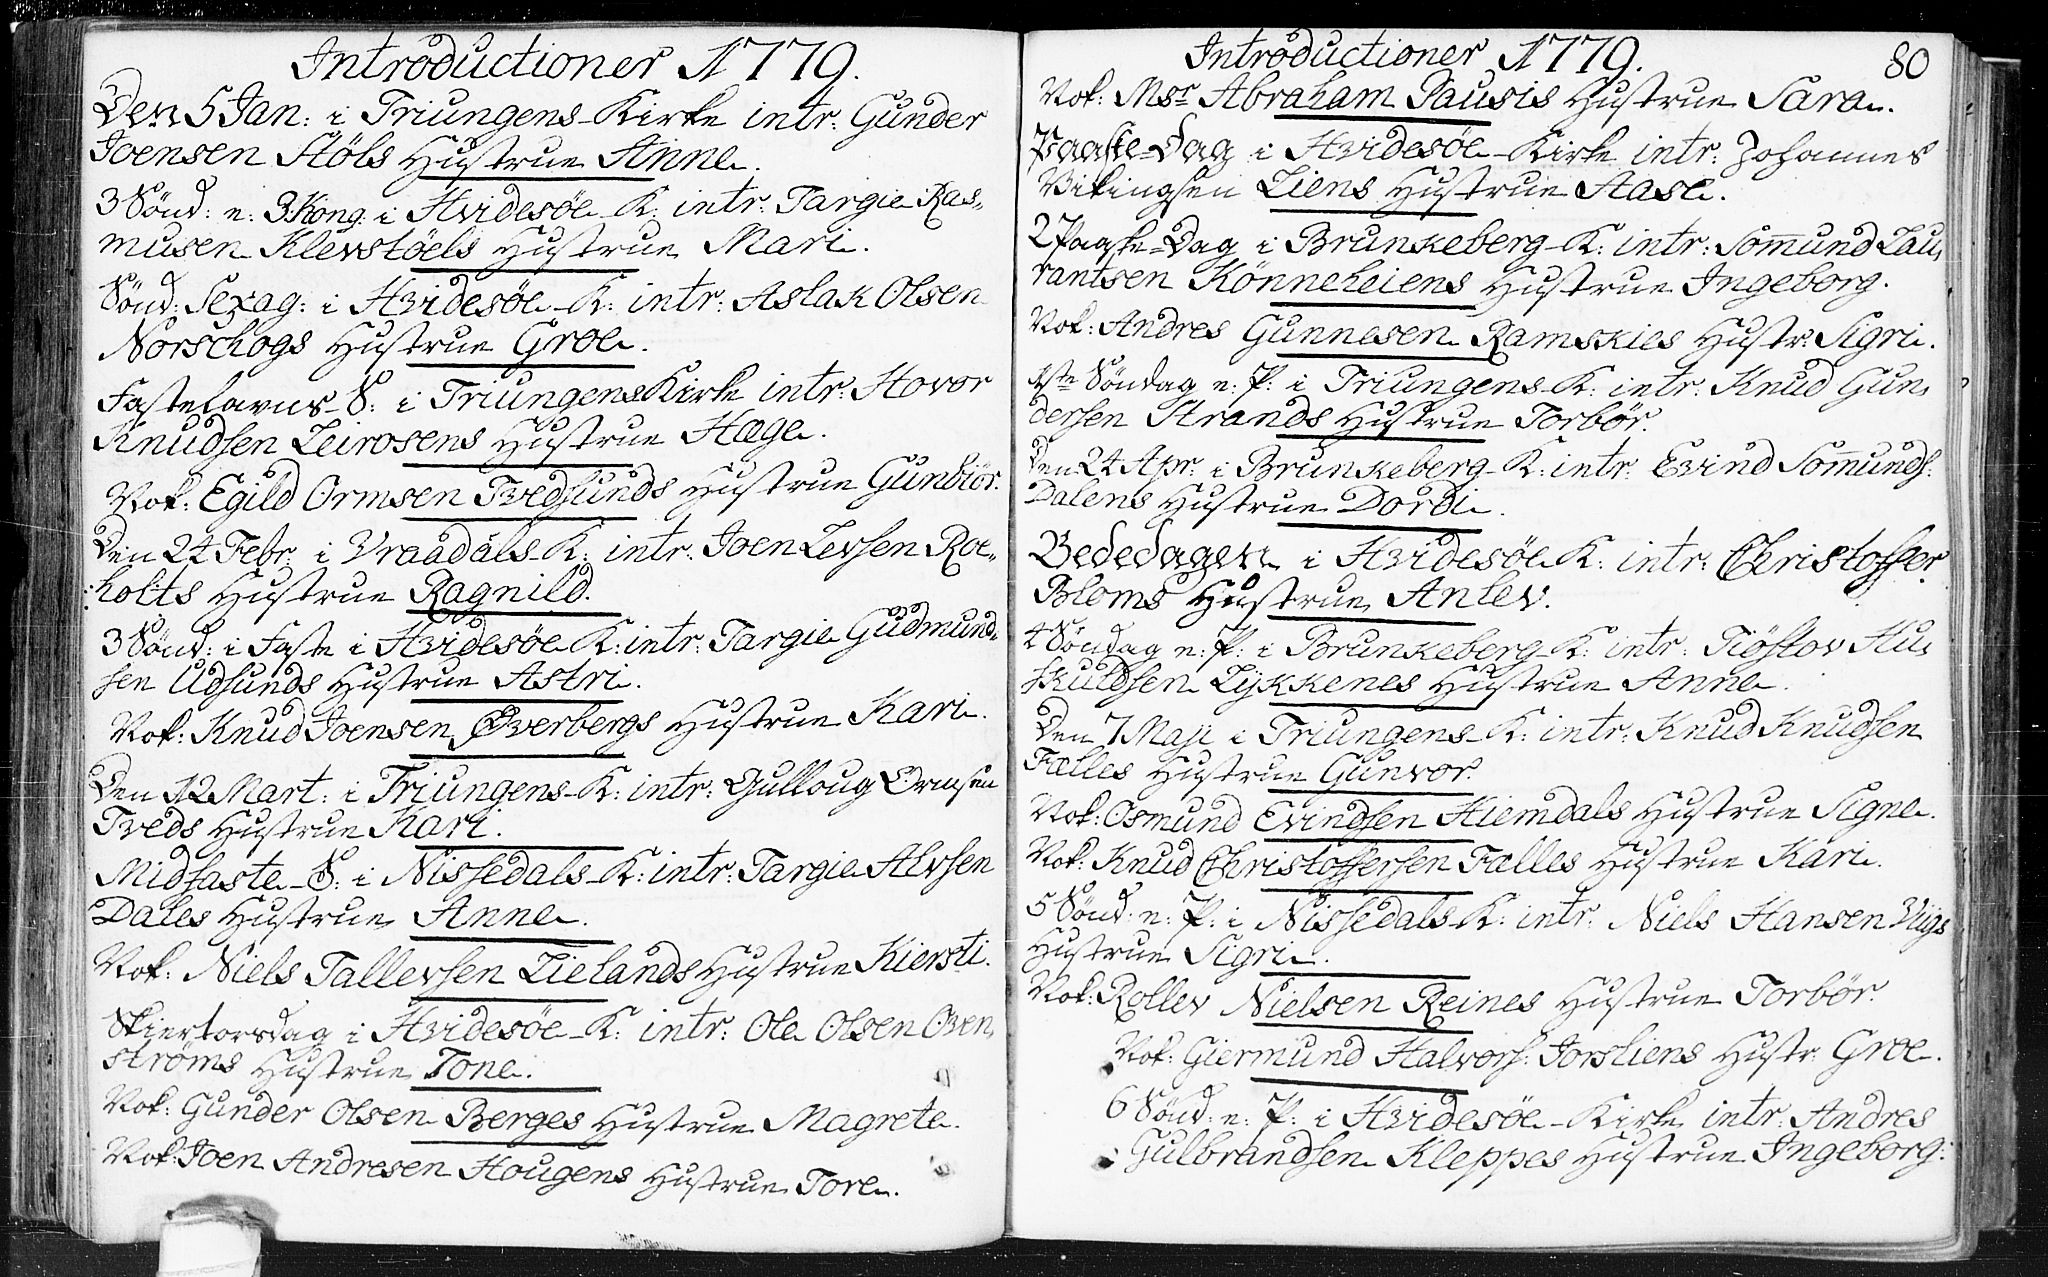 Introductioner 1779.
Den 5 Jan: i Triungens-Kirke intr: Gunder
Joensen Stöls Hustrue Anne.
3 Sönd: e: 3 Kong. i Hvidesöe-K: intr: Targie Ras-
musen Klevstöels Hustrue Mari.
Sönd: Sexag: i Hvidesöe-K: intr: Aslak Olsen
Norschogs Hustrue Groe.
Fastelavns-S: i Triungens Kirke intr: Hovor
Knudsen Leirosens Hustrue Hæge.
Nok: Egild Ormsen Tvedsunds Hustrue Gunbiör.
Den 24 Febr: i Vraadals-K: intr: Joen Levsen Roe-
holts Hustrue Ragnild.
3 Sönd: i Faste i Hvidesöe K: intr: Targie Gudmund-
sen Udsunds Hustrue Astri.
Nok: Knud Joensen Øverbergs Hustrue Kari.
Den 12 Mart: i Triungens-K: intr: Gulloug Ormsen
Tveds Hustrue Kari.
Midfaste-S: i Nissedals-K: intr: Targie Alvsen
Dales Hustrue Anne.
Nok: Niels Tallevsen Lielands Hustrue Kiersti.
Skiertorsdag i Hvidesöe-K: intr: Ole Olsen Oven-
ströms Hustrue Tone.
Nok: Gunder Olsen Berges Hustrue Magrete.
Nok: Joen Andresen Hougens Hustrue Tore.
Introductioner 1779.
80
Nok: Msr Abraham Pausis Hustrue Sara.
Paaske-Dag i Hvidesöe-Kirke intr: Johannes
Vikingsen Liens Hustrue Aase.
2 Paaske-Dag i Brunkeberg-K: intr: Somund Lau-
rantsen Könneheiens Hustrue Ingeborg.
Nok: Andres Gunnesen Ramskies Hustr: Sigri.
1ste Söndag e: P: i Triungens-K: intr: Knud Gun-
dersen Strands Hustrue Torbör.
Den 24 Apr: i Brunkeberg-K: intr: Evind Somunds:
Dalens Hustrue Dordi.
Bededagen i Hvidesöe K: intr: Christoffer
Bloms Hustrue Anlev.
4 Söndag e: P: i Brunkeberg-K: intr: Tiöstov Hu-
skuldsen Lykkenes Hustrue Anne.
Den 7 Maji i Triungens-K: intr: Knud Knudsen
Fælles Hustrue Gunvor.
Nok: Osmund Evindsen Hiemdals Hustrue Signe.
Nok: Knud Christoffersen Fælles Hustrue Kari.
5 Sönd: e: P: i Nissedals-K: intr: Niels Hansen Viigs
Hustrue Sigri.
Nok: Rollev Nielsen Reines Hustrue Torbör.
Nok: Giermund Halvors: Jorsliens Hustr: Groe.
6 Sönd: e: P: i Hvidesöe-Kirke intr: Andres
Gulbrandsen Kleppes Hustrue Ingeborg: